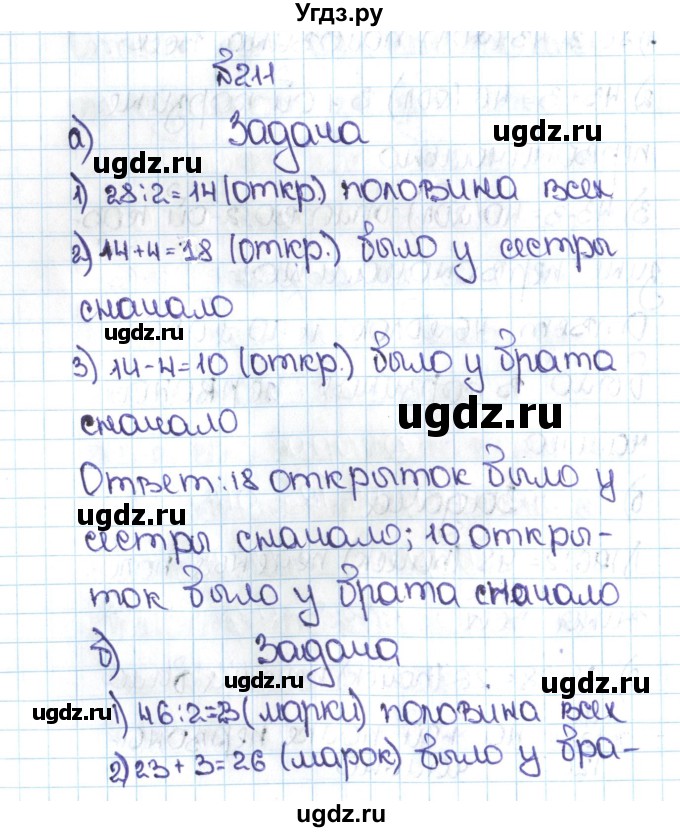 Угдз.ру
№211
а) Задача
ugdz.ru
ugdz.ru
1) 28:2=14 (откр.) половина всех
2) 14+4=18 (откр.) было у сестры
сначало
ugdz.ru
3) 14-4=10 (откр.) было у брата
сначало
ugdz.ru
Ответ: 18 открыток было у
ugdz.ru
сестры сначало; 10 откры-
ток было у брата сначало
б) Задача
ugdz.ru
ugdz.ru
1) 46:2=23 (марки) половина всех
2) 23+3=26 (марок) было у бра-
ugdz.ru
ugdz.ru